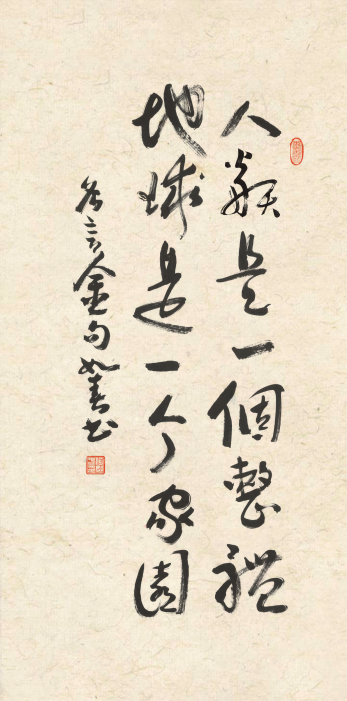 人類是一個整體
地球是一个家園
名言金句如春书